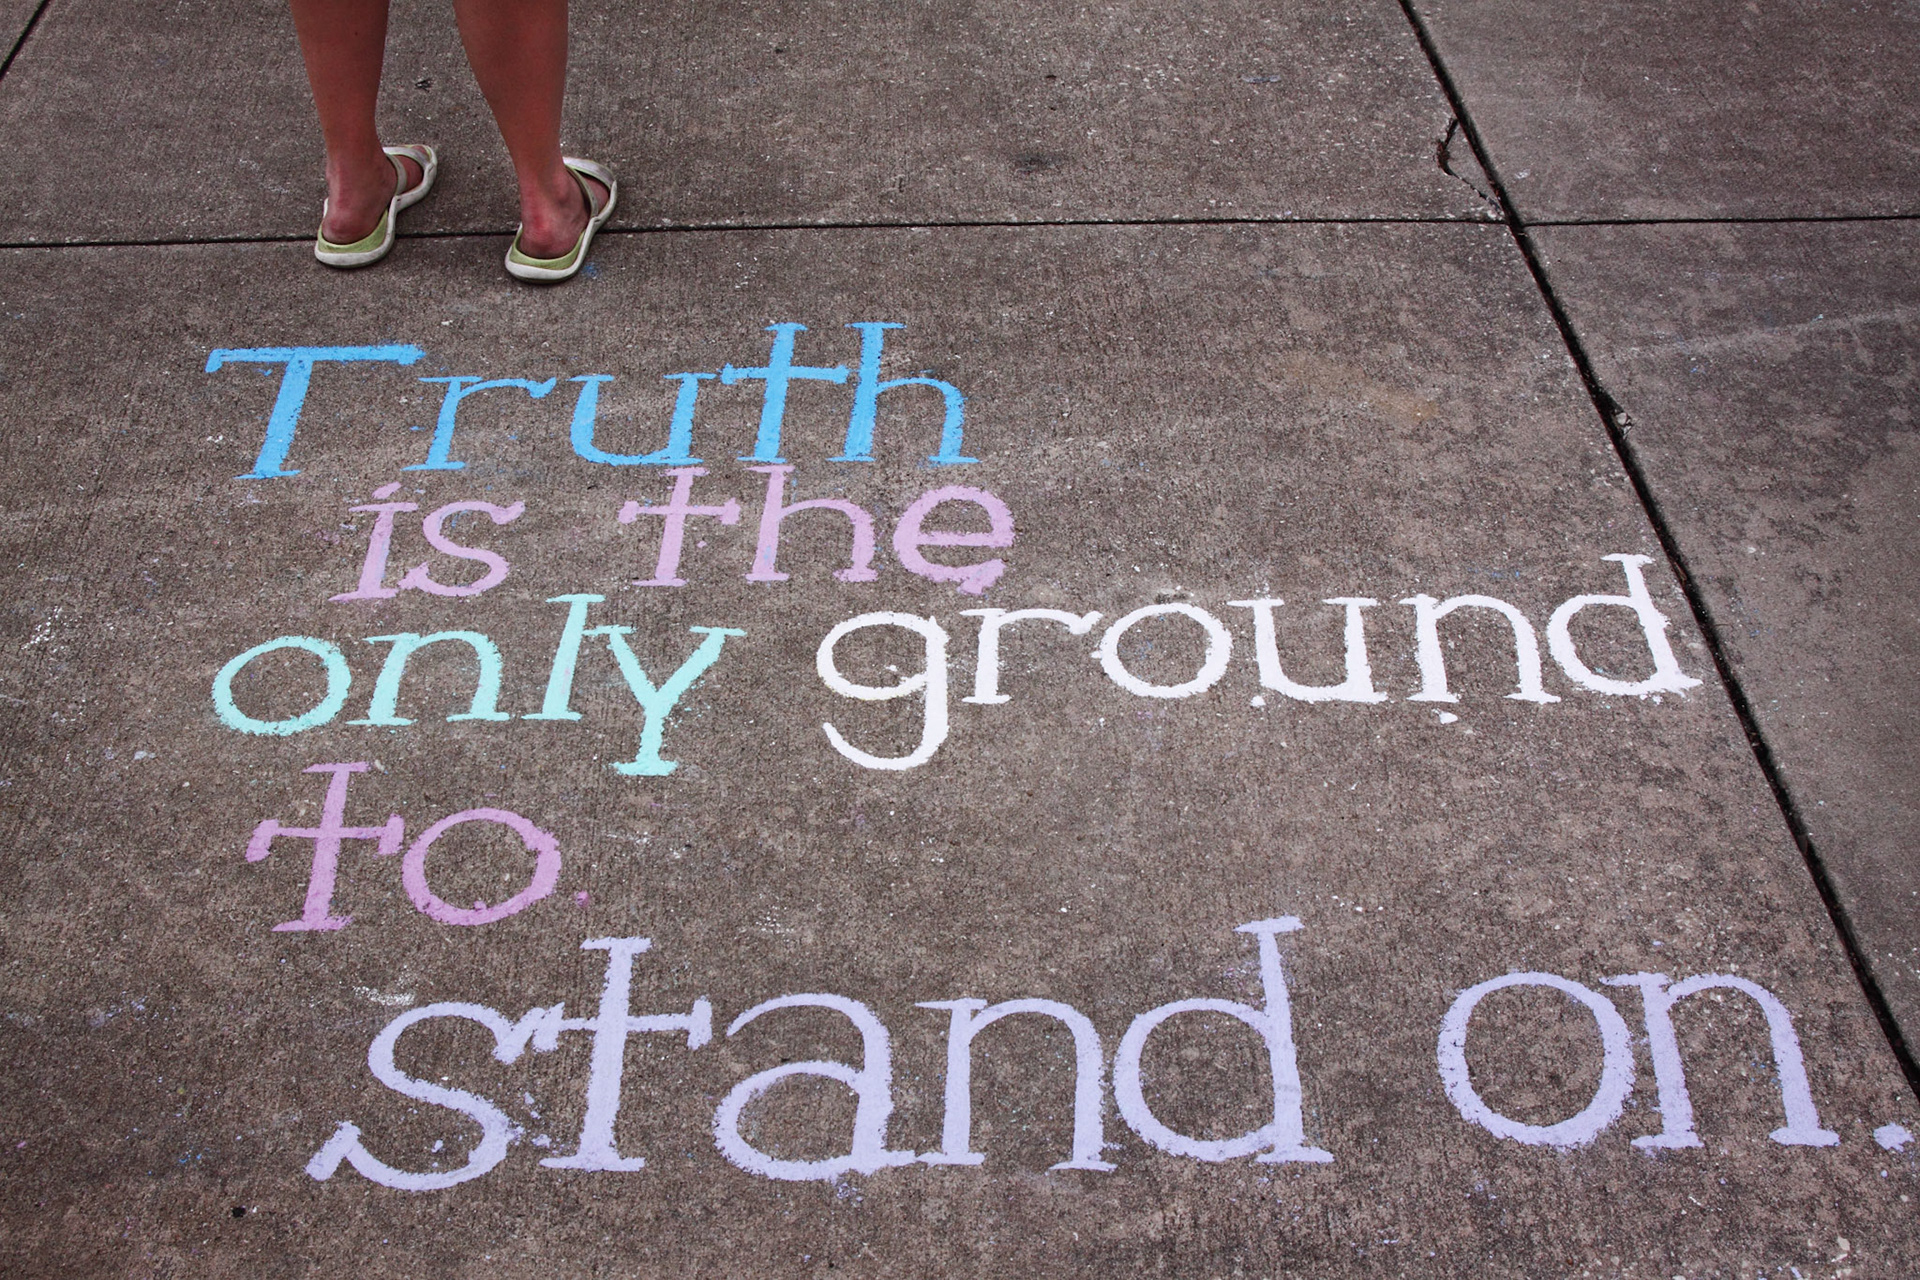 Truth
is the
only ground
to.
stand on.